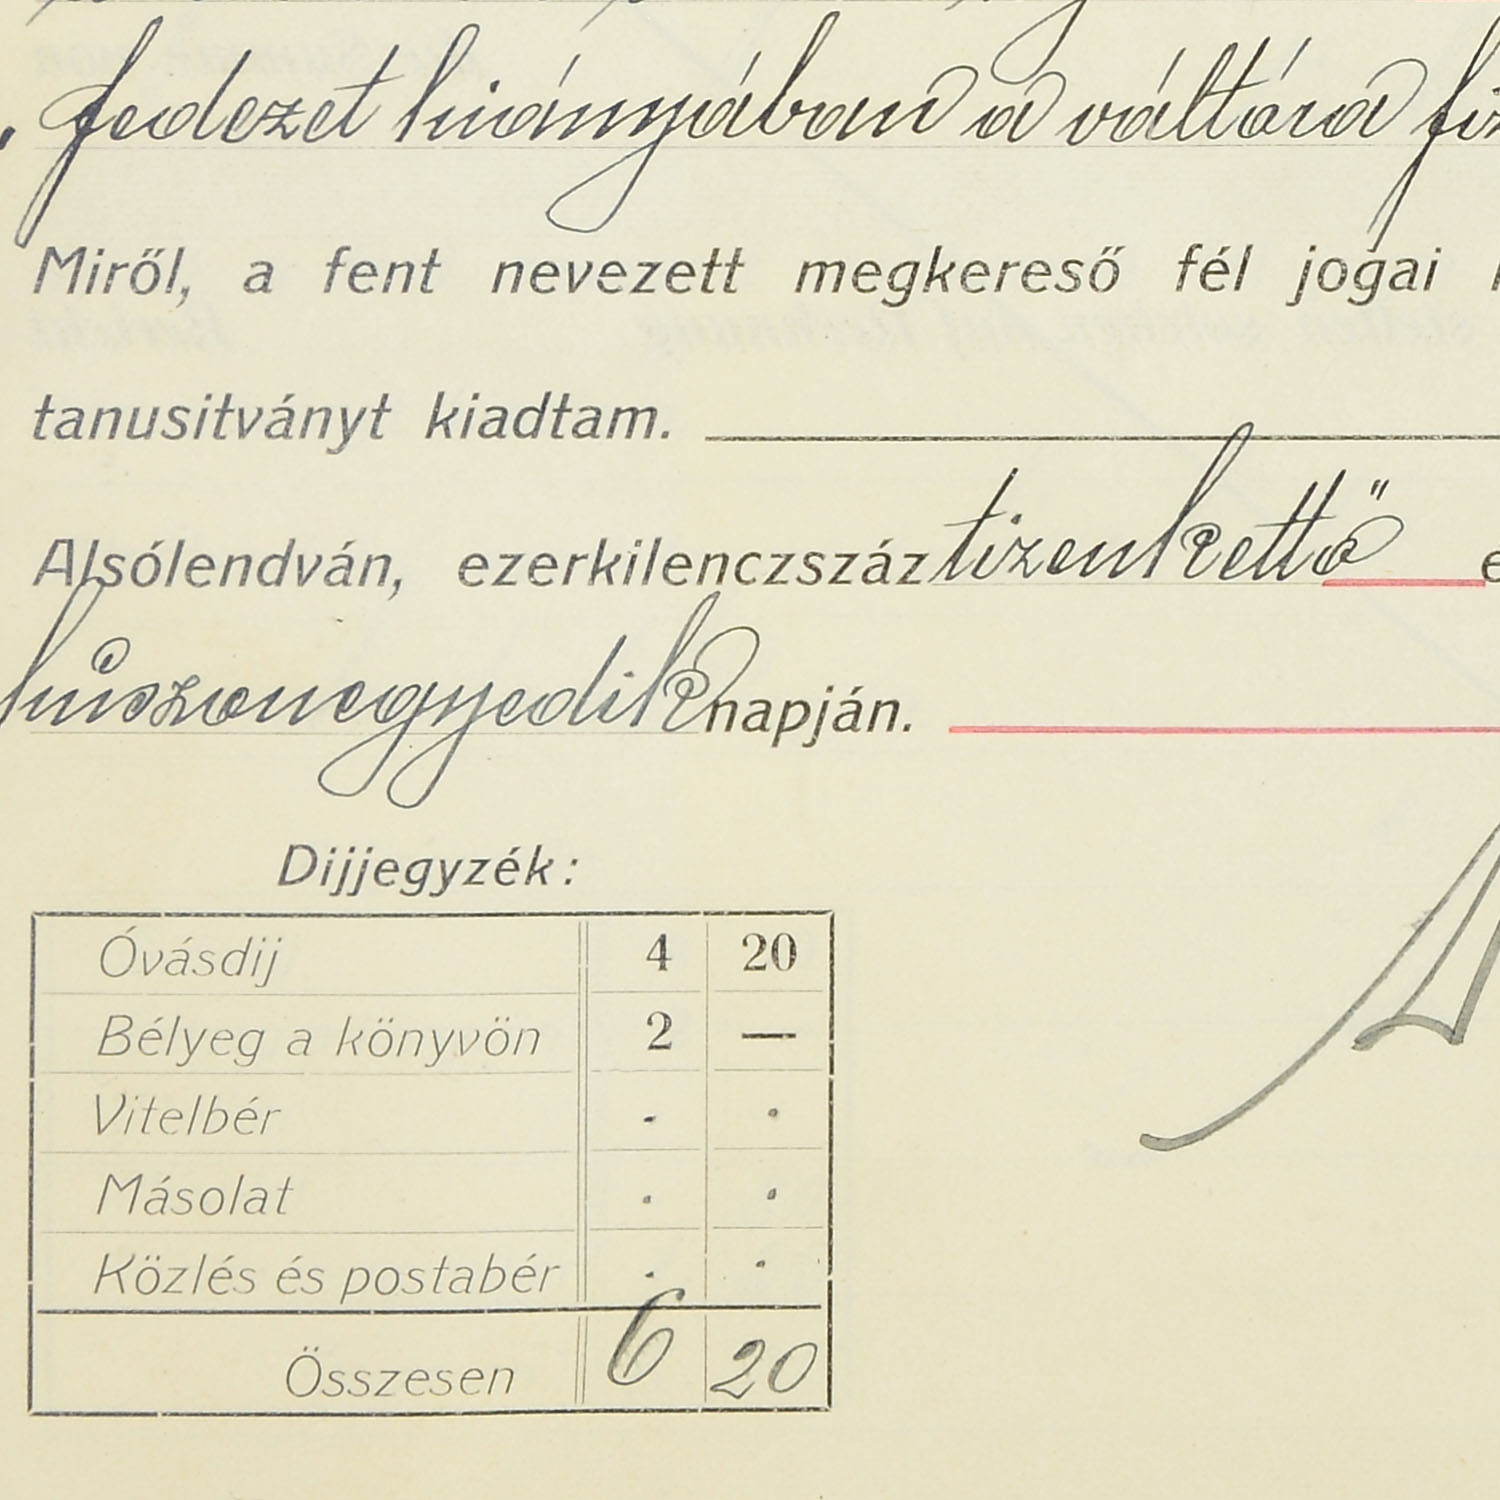 , fedezet hiányában a váltóra fiz
Miről, a fent nevezett megkereső fél jogai
tanusitványt kiadtam.
Alsólendván, ezerkilenczszáz tizenkettő e
húszonegyedik napján.
Dijjegyzék:
Óvásdij 4 20
Bélyeg a könyvön 2 —
Vitelbér . .
Másolat . .
Közlés és postabér . .
Összesen 6 20